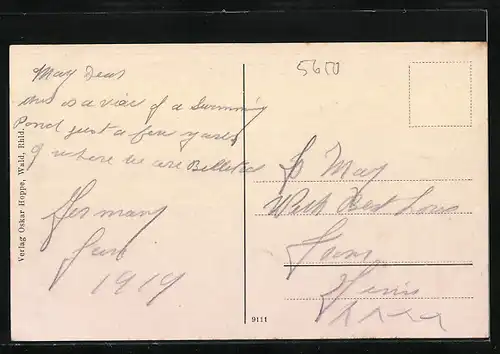 May Dear
this is a view of a Swimming
Pond just a few yards
of where we are Billeted
Germany
Jan
1919
5650
To May
With Best Love
From
Verlag Oskar Hoppe, Wald, Rhld.
9111